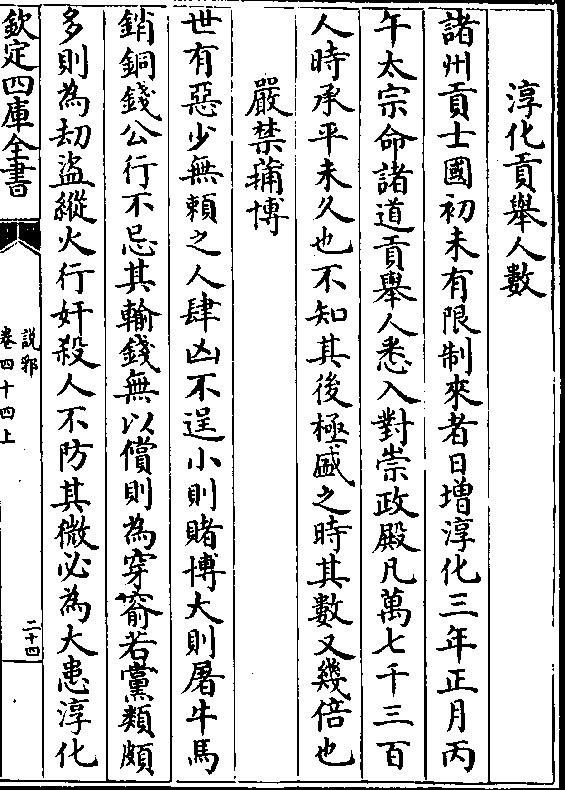 淳化貢舉人數
諸州貢士國初未有限制來者日增淳化三年正月丙
午太宗命諸道貢舉人悉入對崇政殿凡萬七千三百
人時承平未久也不知其後極盛之時其數又幾倍也
嚴禁蒱博
世有惡少無賴之人肆凶不逞小則賭博大則屠牛馬
銷銅錢公行不忌其輸錢無以償則為穿窬若黨類頗
多則為刼盜縱火行奸殺人不防其微必為大患淳化
欽定四庫全書
説郛
卷四十四上
二十四